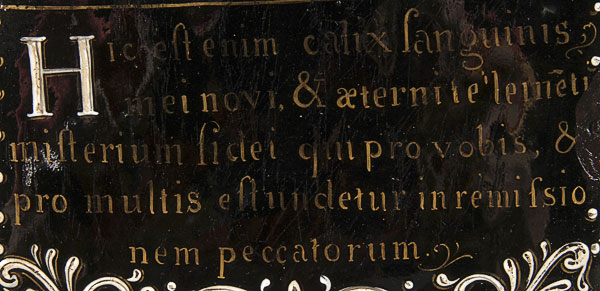 Hic est enim calix sanguinis
mei novi, & æterni te'lemẽti
misterium fidei qui pro vobis, &
pro multis efundetur in remissio
nem peccatorum.